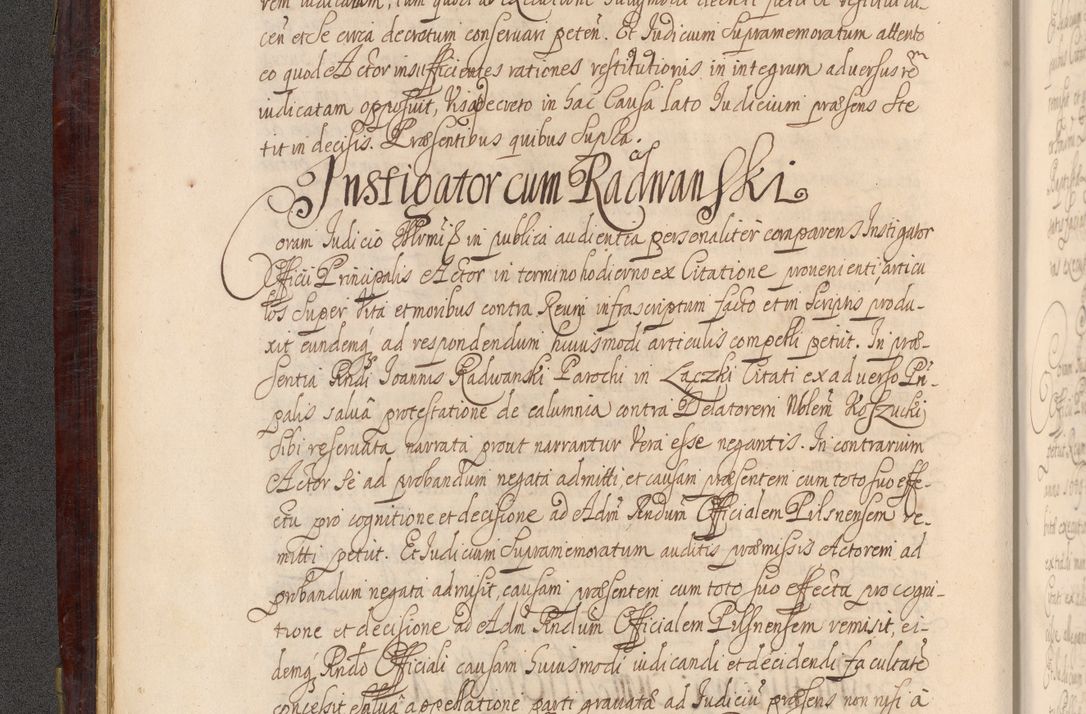 rem iudicatam, tum quod ab executione
cen et se circa decretum conservari peten. Et Iudicium Supramemoratum attento
eo quod Actor insufficientes rationes restitutionis in integrum adversus rem
iudicatam opposuit, Visa decreto in hac Causa lato Iudicium præsens Ste
tit in decisis. Præsentibus quibus Supra.
Instigator cum Radwanski
Coram Iudicio in publica audientia personaliter comparens Instigator
Officii Principalis Actor in termino hodierno ex Citatione provenienti articu
los Super vita et moribus contra Reum infrascriptum facto et in Scriptis produ-
xit eundemq ad respondendum huiusmodi articulis compelli petiit. In præ-
sentia Rndi Ioannis Radwanski Parochi in Łączki Citati ex adverso Pri-
palis salva protestatione de calumnia contra Delatorem Nblem Koszucki
sibi reservata narrata prout narrantur Vera esse negantis. In contrarium
Actor se ad probandum negata admitti, et causam præsentem cum toto suo effe-
ctu pro cognitione et decisione ad Adm Rndum Officialem Pilsnensem re-
mitti petiit. Et Iudicium Supramemoratum auditis præmissis Actorem ad
probandum negata admisit, causam præsentem cum toto suo effectu pro cogni-
tione et decisione ad Adm Rndum Officialem Pilsnensem remisit, ei-
demq Rndo Officiali causam huiusmodi iudicandi et decidendi facultate
concessit salva appellatione parti gravatæ ad Iudiciu præsens non nisi à